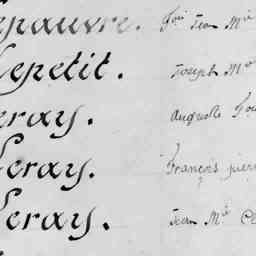 epauvre. Jean M
Lepetit. Joseph M
eray. Auguste
Leray. François pierre
Leray. Jean M